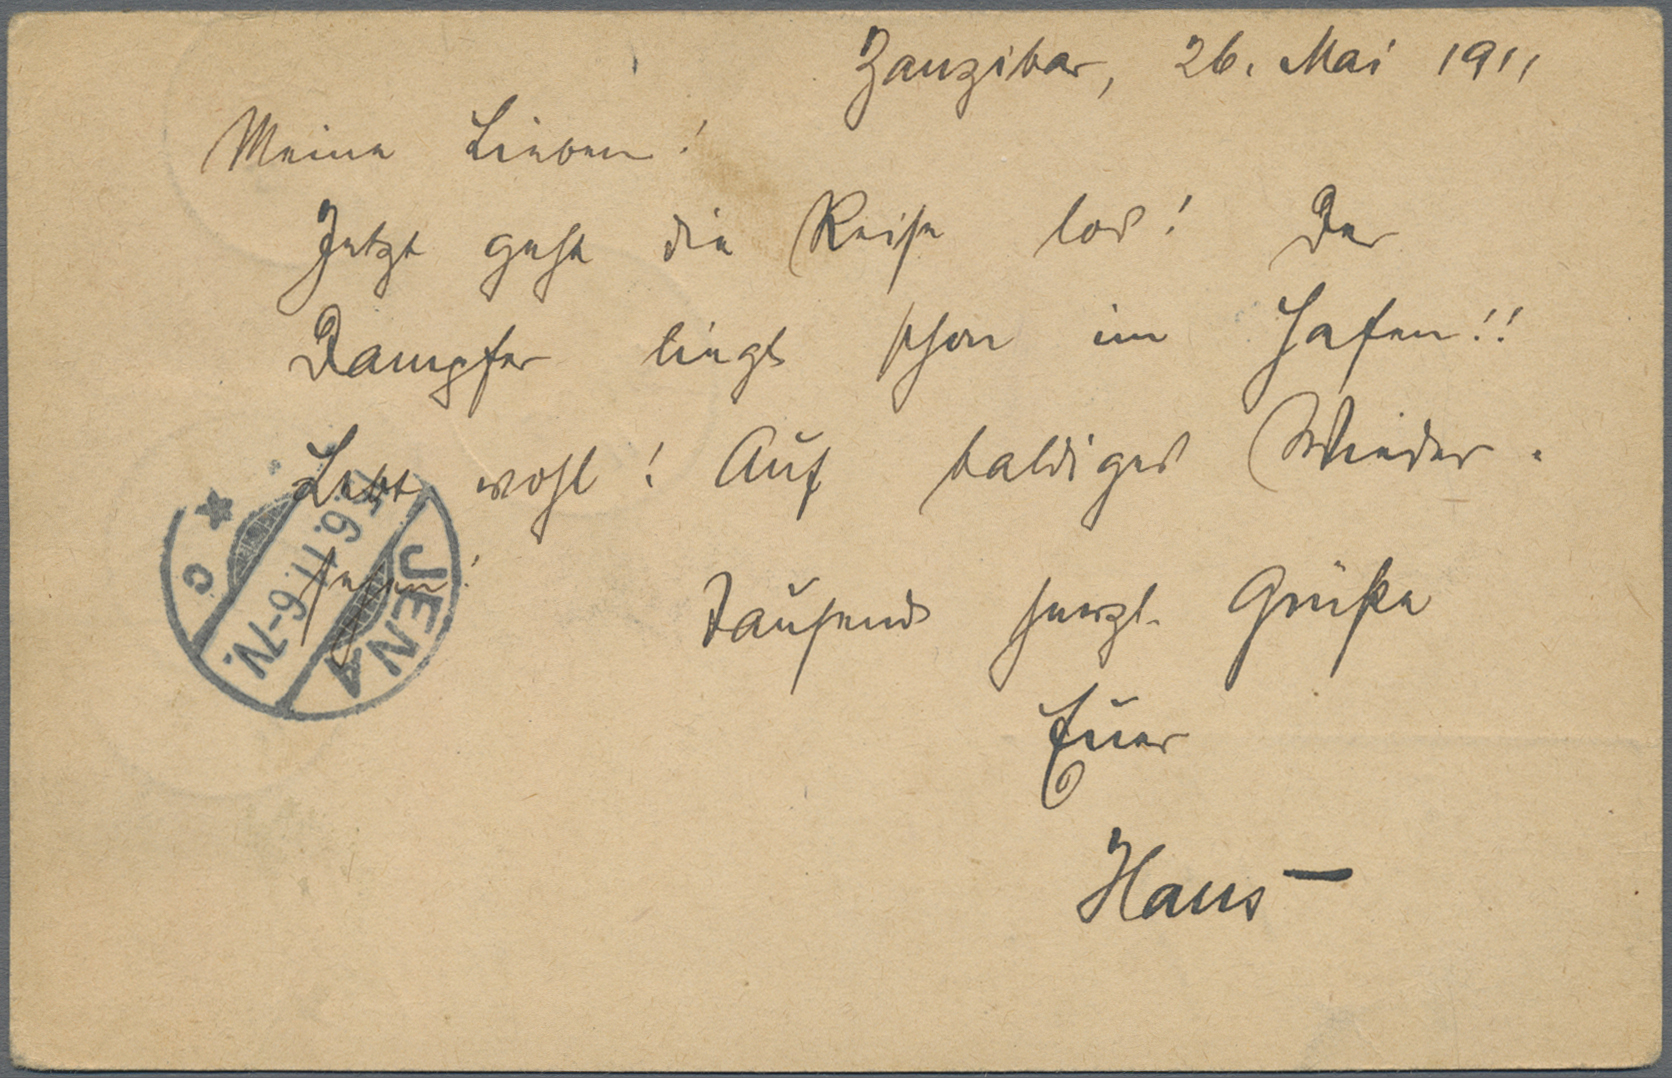 Zanzibar, 26. Mai 1911
Meine Lieben!
Jetzt geht die Reise los! Der
Dampfer liegt schon im Hafen!!
Lebt wohl! Auf baldiges Wieder-
sehen!
Tausend herzl. Grüße
Euer
Hans
JENA
5.6.11.6-7N.
c